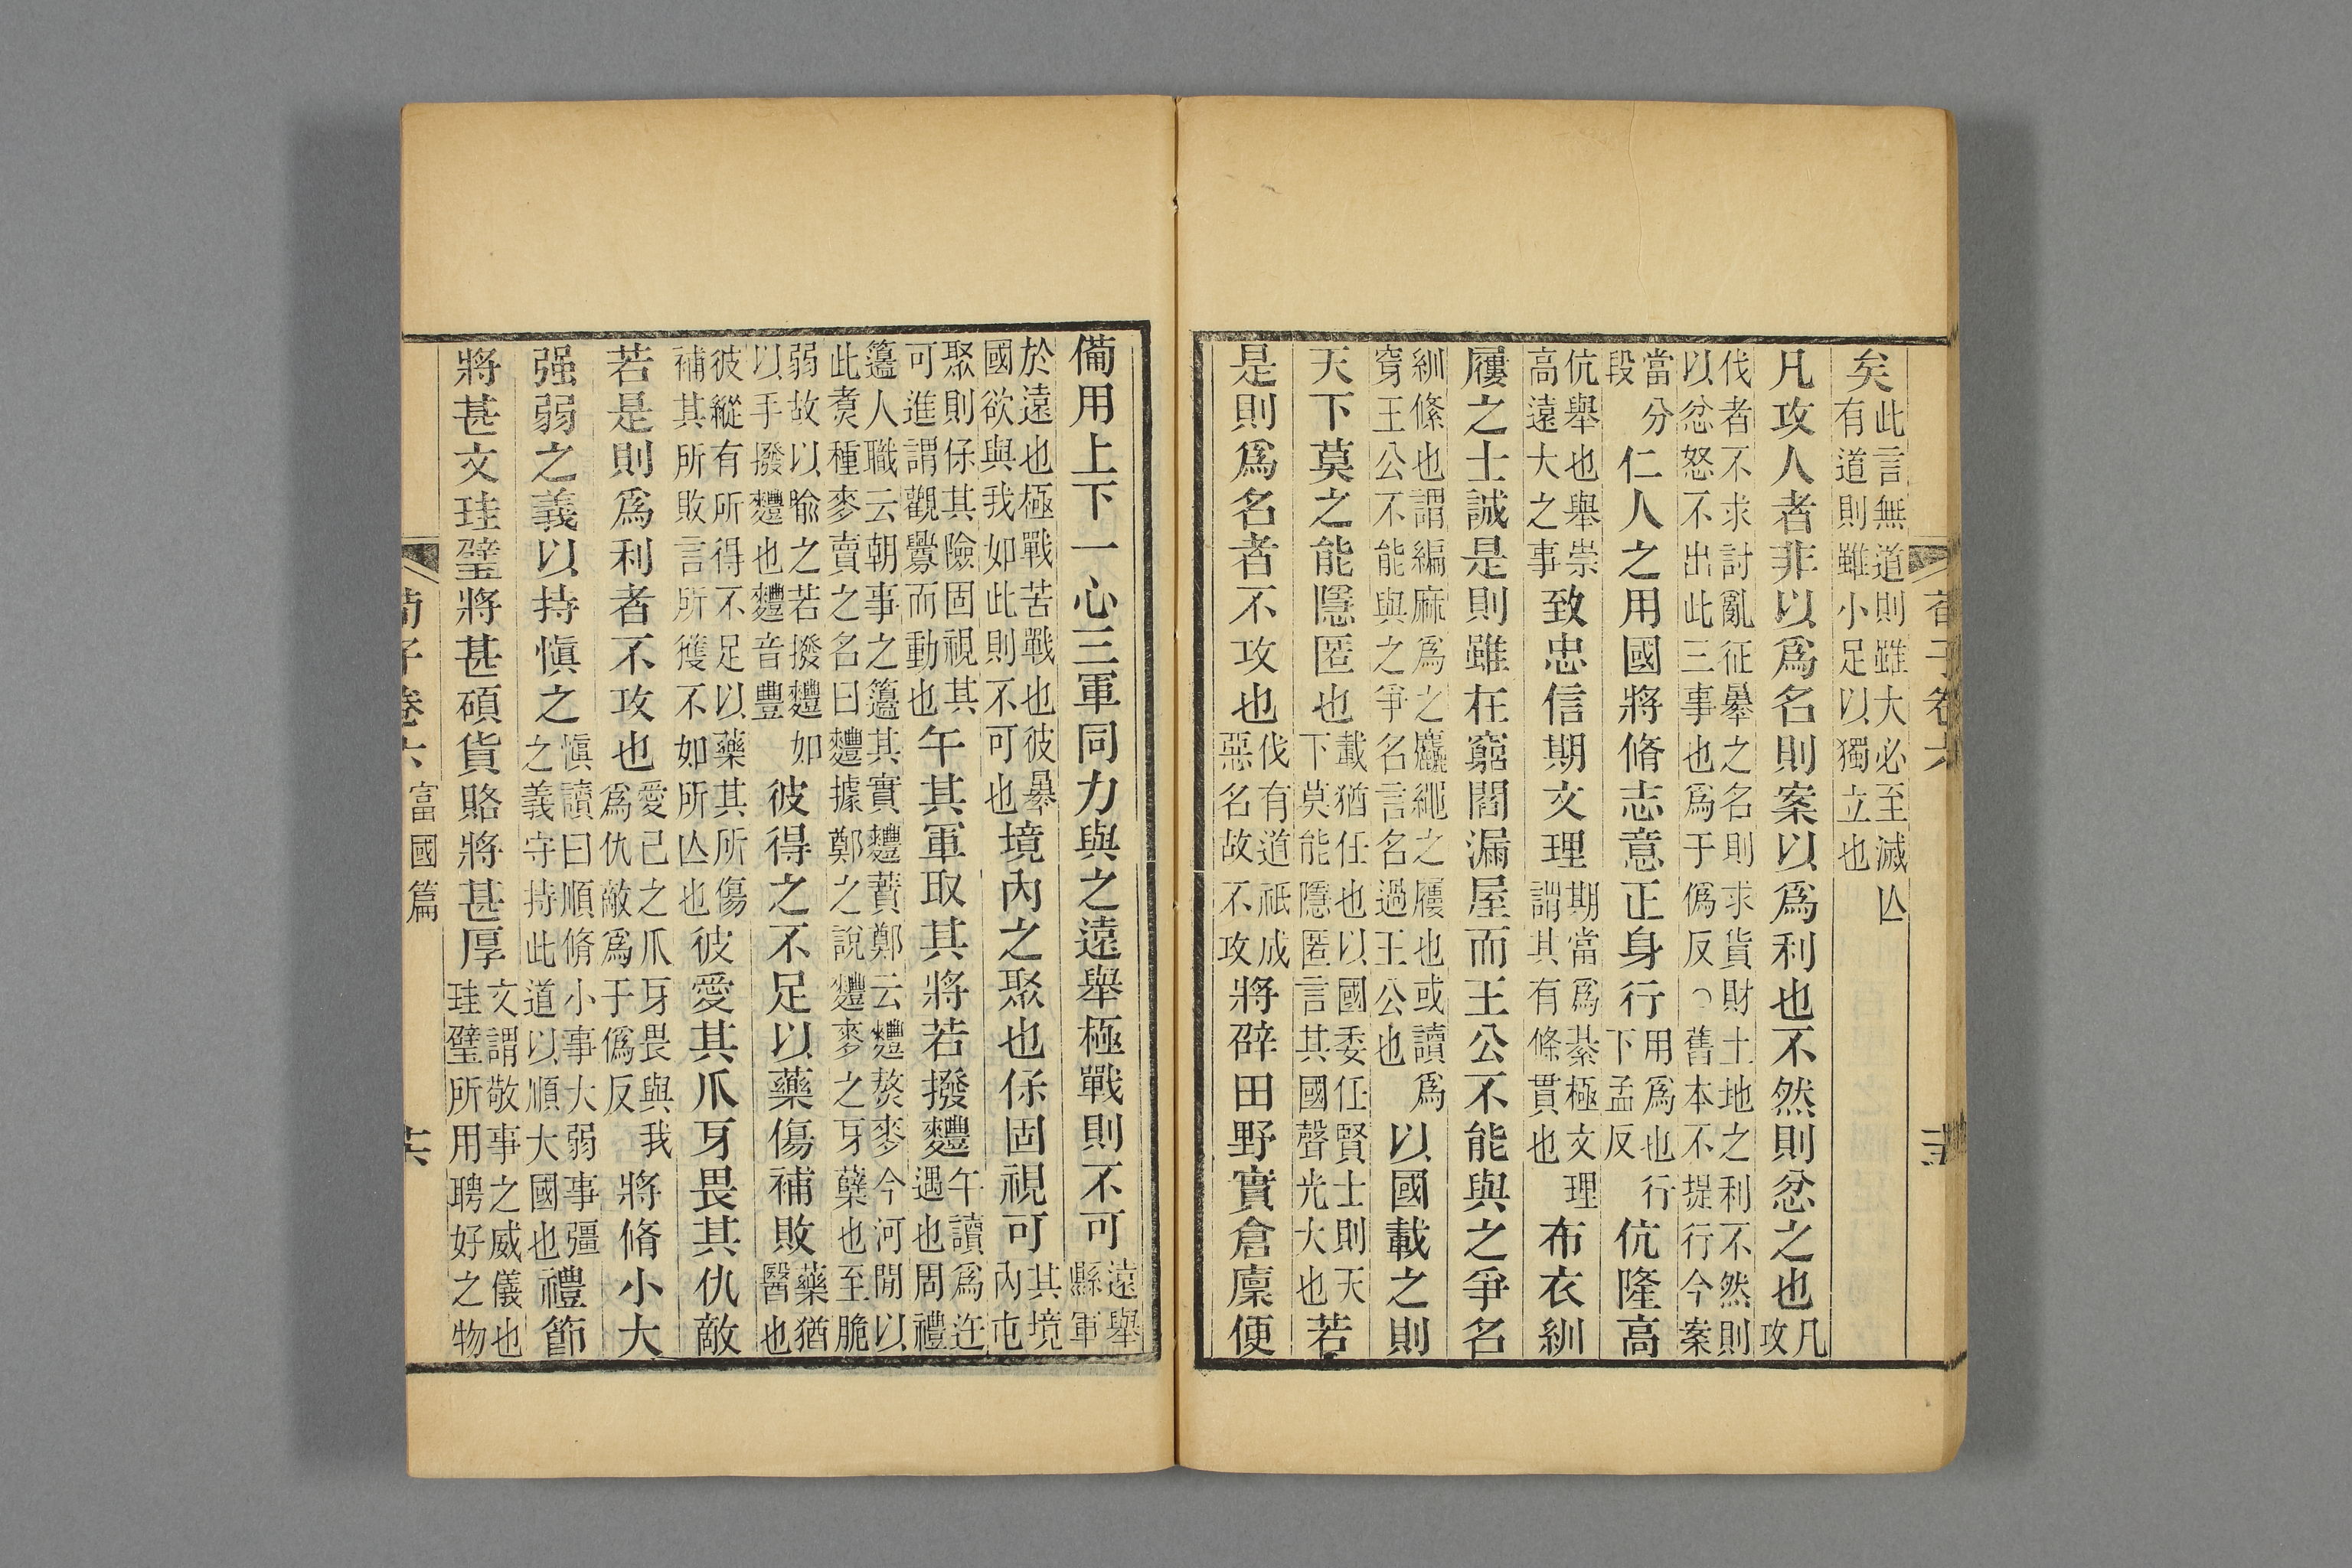 荀子卷六
矣此言無道則雖大必至滅亾有道則雖小足以獨立也
凡攻人者非以爲名則案以爲利也不然則忿之也凡攻
伐者不求討亂征暴之名則求貨財土地之利不然則以忿怒不出此三事也爲于僞反○舊本不提行今案
當分段仁人之用國將脩志意正身行用爲也行下孟反伉隆高
伉舉也舉崇高遠大之事致忠信期文理期當爲綦極文理謂其有條貫也布衣紃
屨之士誠是則雖在窮閻漏屋而王公不能與之爭名
紃絛也謂編麻爲之麤繩之屨也或讀爲穿王公不能與之爭名言名過王公也以國載之則
天下莫之能隱匿也載猶任也以國委任賢士則天下莫能隱匿言其國聲光大也若
是則爲名者不攻也伐有道祇成惡名故不攻將辟田野實倉廩便
備用上下一心三軍同力與之遠舉極戰則不可遠舉縣軍
於遠也極戰苦戰也彼暴國欲與我如此則不可也境內之聚也保固視可其境內屯
聚則保其險固視其可進謂觀釁而動也午其軍取其將若撥麷午讀爲迕遇也周禮
籩人職云朝事之籩其實麷蕡鄭云麷熬麥今河閒以此煑種麥賣之名曰麷據鄭之說麷麥之牙蘖也至脆
弱故以喩之若撥麷如以手撥麷也麷音豐彼得之不足以藥傷補敗藥猶醫也
彼縱有所得不足以藥其所傷補其所敗言所獲不如所亾也彼愛其爪牙畏其仇敵
若是則爲利者不攻也愛己之爪牙畏與我爲仇敵爲于僞反將脩小大
强弱之義以持愼之愼讀曰順脩小事大弱事彊之義守持此道以順大國也禮節
將甚文珪璧將甚碩貨賂將甚厚文謂敬事之威儀也珪璧所用聘好之物
荀子卷六 富國篇 十六